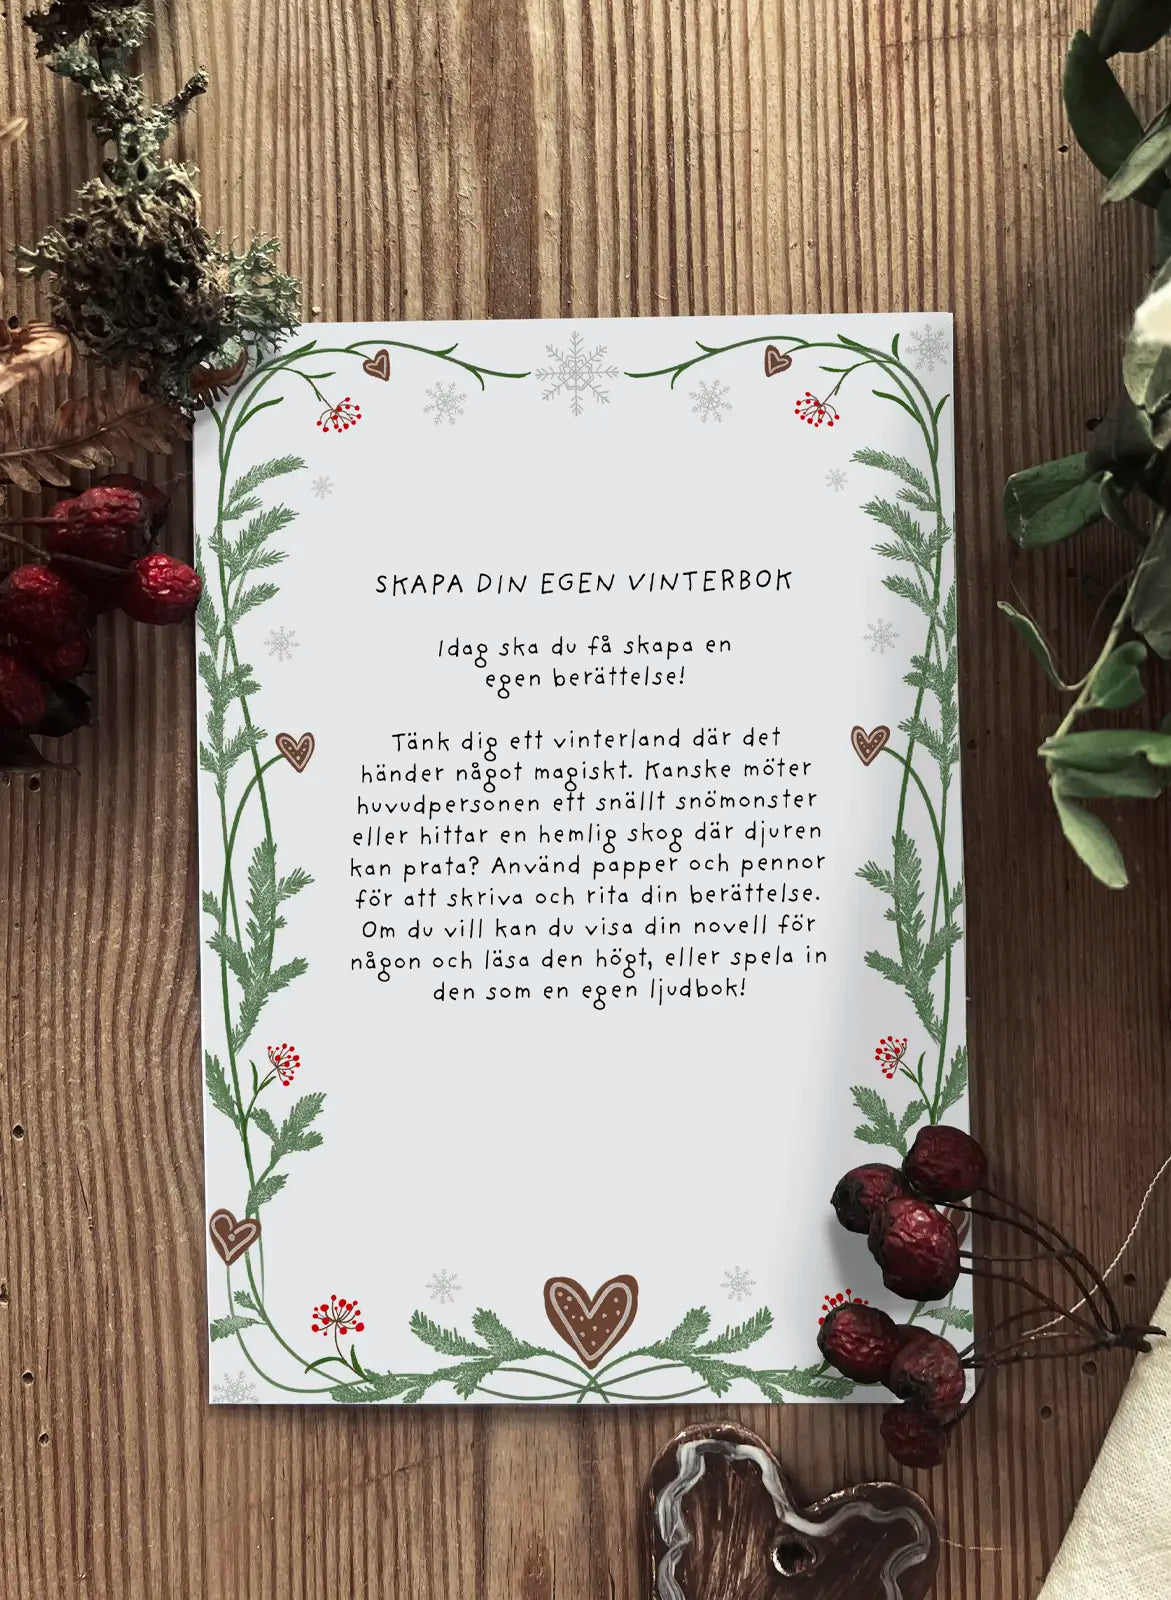 SKAPA DIN EGEN VINTERBOK
Idag ska du få skapa en
egen berättelse!
Tänk dig ett vinterland där det
händer något magiskt. Kanske möter
huvudpersonen ett snällt snömonster
eller hittar en hemlig skog där djuren
kan prata? Använd papper och pennor
för att skriva och rita din berättelse.
Om du vill kan du visa din novell för
någon och läsa den högt, eller spela in
den som en egen ljudbok!